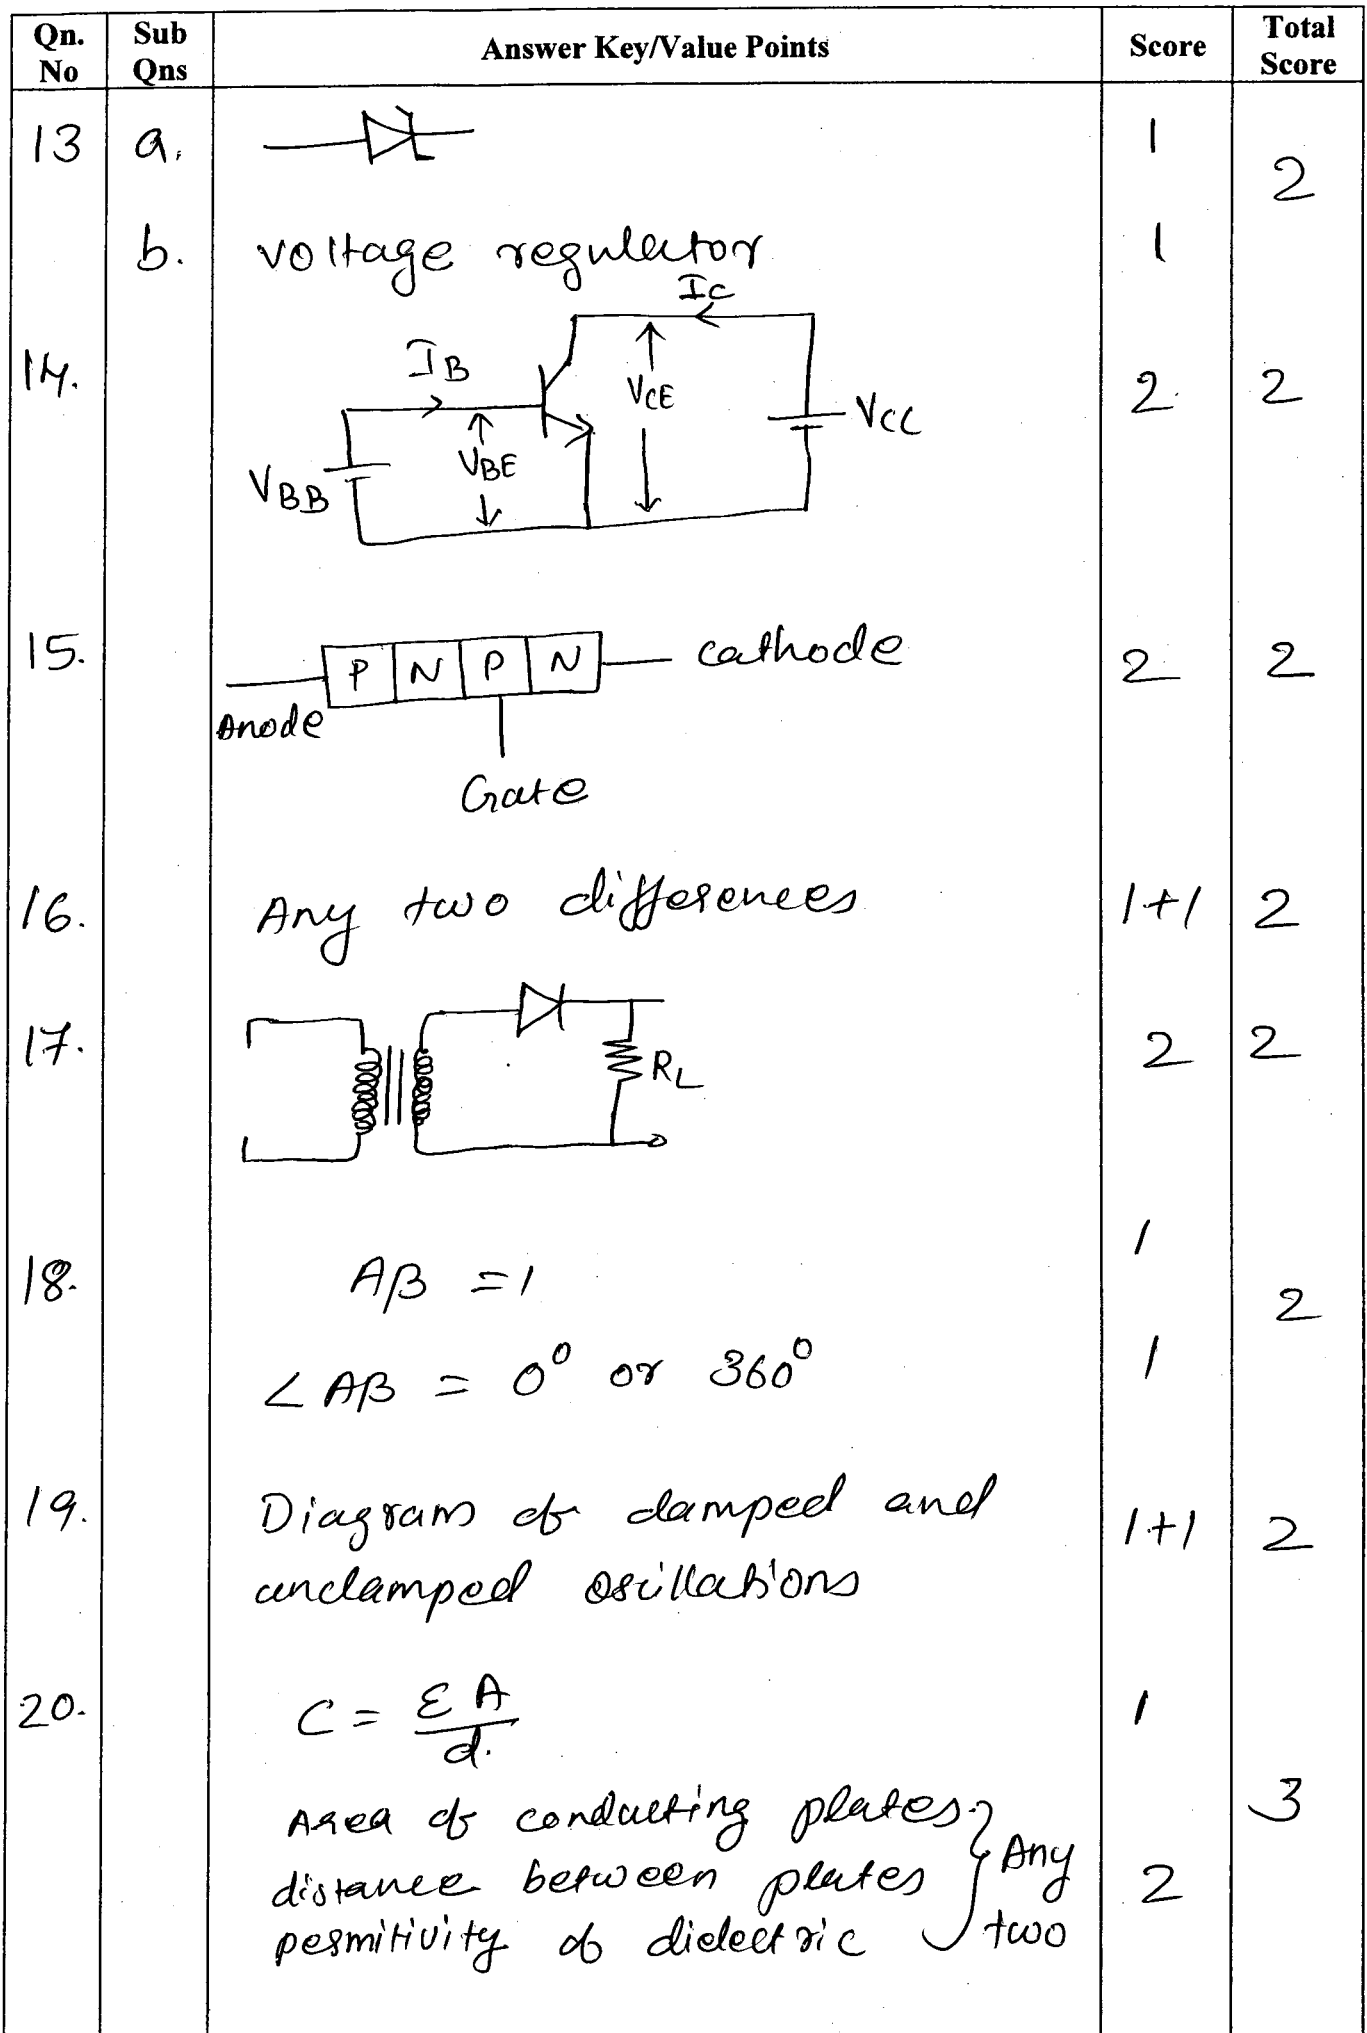 Qn. No Sub Qns Answer Key/Value Points Score Total Score
13 a. 1 2
b. voltage regulator 1
14. IB IC VCE VBE VBB VCC 2 2
15. P N P N cathode 2 2
Anode
Gate
16. Any two differences 1+1 2
17. RL 2 2
18. Aβ = 1 1 2
∠Aβ = 0° or 360° 1
19. Diagram of damped and 1+1 2
undamped oscillations
20. C = εA/d. 1 3
Area of conducting plates
distance between plates } Any two 2
permitivity of dielectric